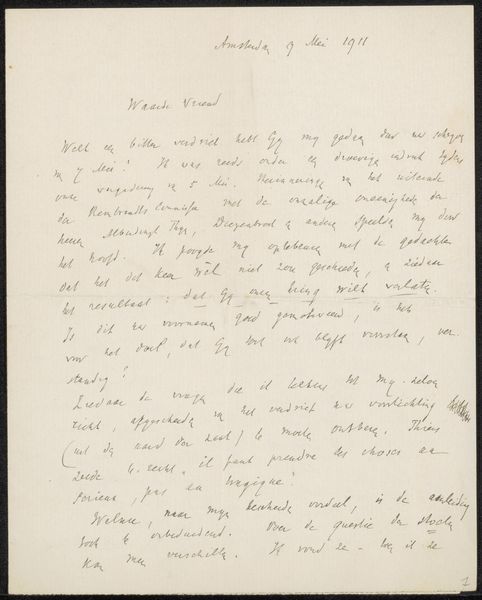 Amsterdam 9 Mei 1911
Waarde Vriend
Welk een bitter verdriet hebt Gij mij gedaan door uw schrijven
van 7 Mei! Ik was reeds onder een droevige indruk tijdens
onze vergadering van 5 Mei. Herinneringen van het uiteinde
der Rembrandt Commissie met de onzalige oneenigheden der
heeren Alberdingk Thym, Diepenbrock en anderen speelden mij door
het hoofd. Ik poogde mij optebeuren met de gedachte
dat het dit keer wel niet zou geschieden, en ziedaar
het resultaat: dat Gij onzen kring wilt verlaten.
Is dit uw voornemen goed gemotiveerd, is het
voor het doel, dat Gij toch ook blijft voorstaan, ver-
standig?
Ziedaar de vragen die ik telkens tot mij zelven
richt, afgescheiden van het verdriet uw voorlichting
(uit den aard der zaak) te moeten ontberen. Thiers
zeide te recht, "il faut prendre les choses au
serieux, pas au tragique".
Welnu, naar mijn bescheiden oordeel, is de aanleiding
ook te onbeduidend. Over de questie der stoelen
kan men verschillen. Ik vond ze - hoe ik ze
1